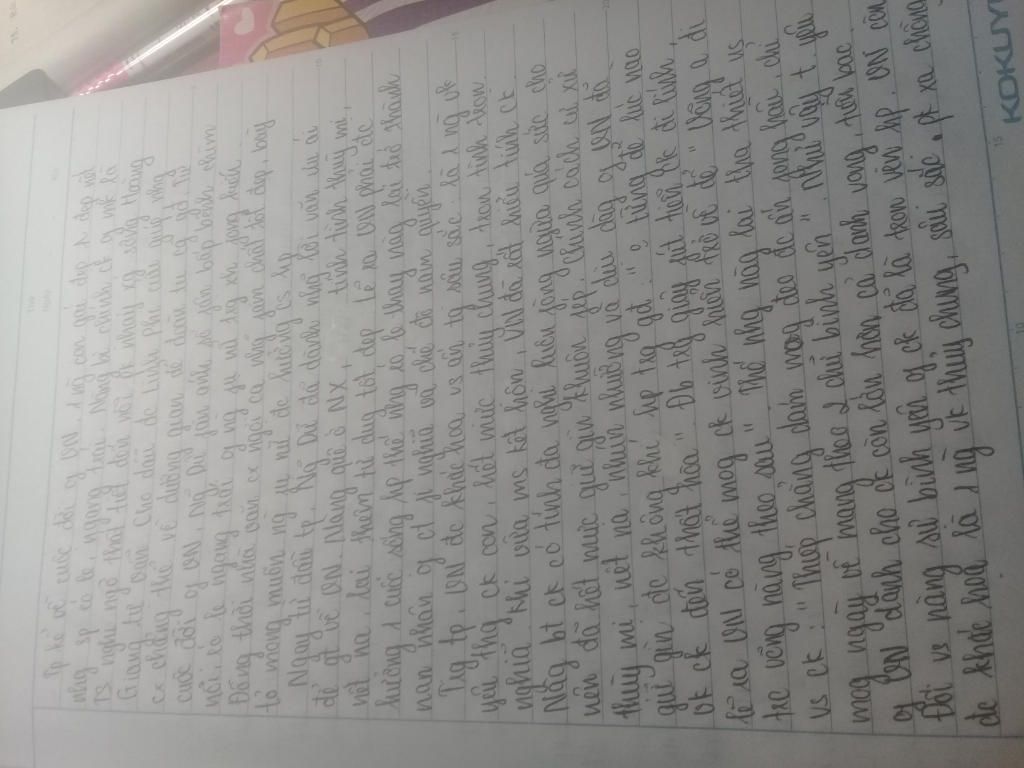 Tp kể về cuộc đời of VN, 1 ng con gái đẹp, 1 đẹp nết
nhg sp có le ngang trái. Nàng bị chính ck of mk là
TS nghi ngờ thất tiết đến nỗi p nhảy xg sông Hoàng
Giang tự vẫn. Cho dẫu đc Linh Phi cứu giúp nhg
cx chẳng thể về dương gian để đoàn tụ cg gđ. Từ
cuộc đời of VN, Ng Dữ phản ánh số phận bấp bênh chìm
nổi, éo le ngang trái of ng phụ nữ trg xh phong kiến
Đồng thời nhà văn cx ngợi ca nhg phẩm chất tốt đẹp, bày
tỏ mong muốn ng phụ nữ đc hưởng hp
Ngay từ đầu tp, Ng Dữ đã dành nhg lời văn ưu ái
để gt về VN "Nàng quê ở NX, tính tình thùy mị,
nết na, lại thêm tư dung tốt đẹp". Lẽ ra VN phải đc
hưởng 1 cuộc sống hp thế nhg éo le thay nàng lại trở thành
nạn nhân of ct phi nghĩa và chế độ nam quyền.
Trg tp, VN đc khắc họa vs vẻ đẹp tâm hồn sâu sắc là 1 ng vk
yêu thg ck con, hết mực thủy chung, trọn tình trọn
nghĩa. Khi vừa ms kết hôn, VN đã rất hiểu tính ck
Nàng bt ck có tính đa nghi hay phòng ngừa quá sức cho
nên đã hết mực giữ gìn khuôn phép. Chính cách cư xử
thùy mị, nết na, nhún nhường và dịu dàng of VN đã
giữ gìn đc không khí hp trg gđ "k từng để lúc nào
vk ck đến thất hòa". Đb trg giây phút tiễn ck đi lính,
lẽ ra VN có thể mong ck vinh hiển trở về để "Võng a đi
trc võng nàng theo sau" Thế nhg nàng lại tha thiết vs
vs ck: "Thiếp chẳng dám mong đeo đc ấn phong hầu, chỉ
mong ngày về mang theo 2 chữ bình yên" Như vậy t. yêu
of VN dành cho ck còn lớn hơn cả danh vọng, tiền bạc
Đối vs nàng sự bình yên of ck đã là trọn vẹn hp. VN còn
đc khắc họa là 1 ng vk thủy chung, sâu sắc. Phải xa chồng
KOKUYO